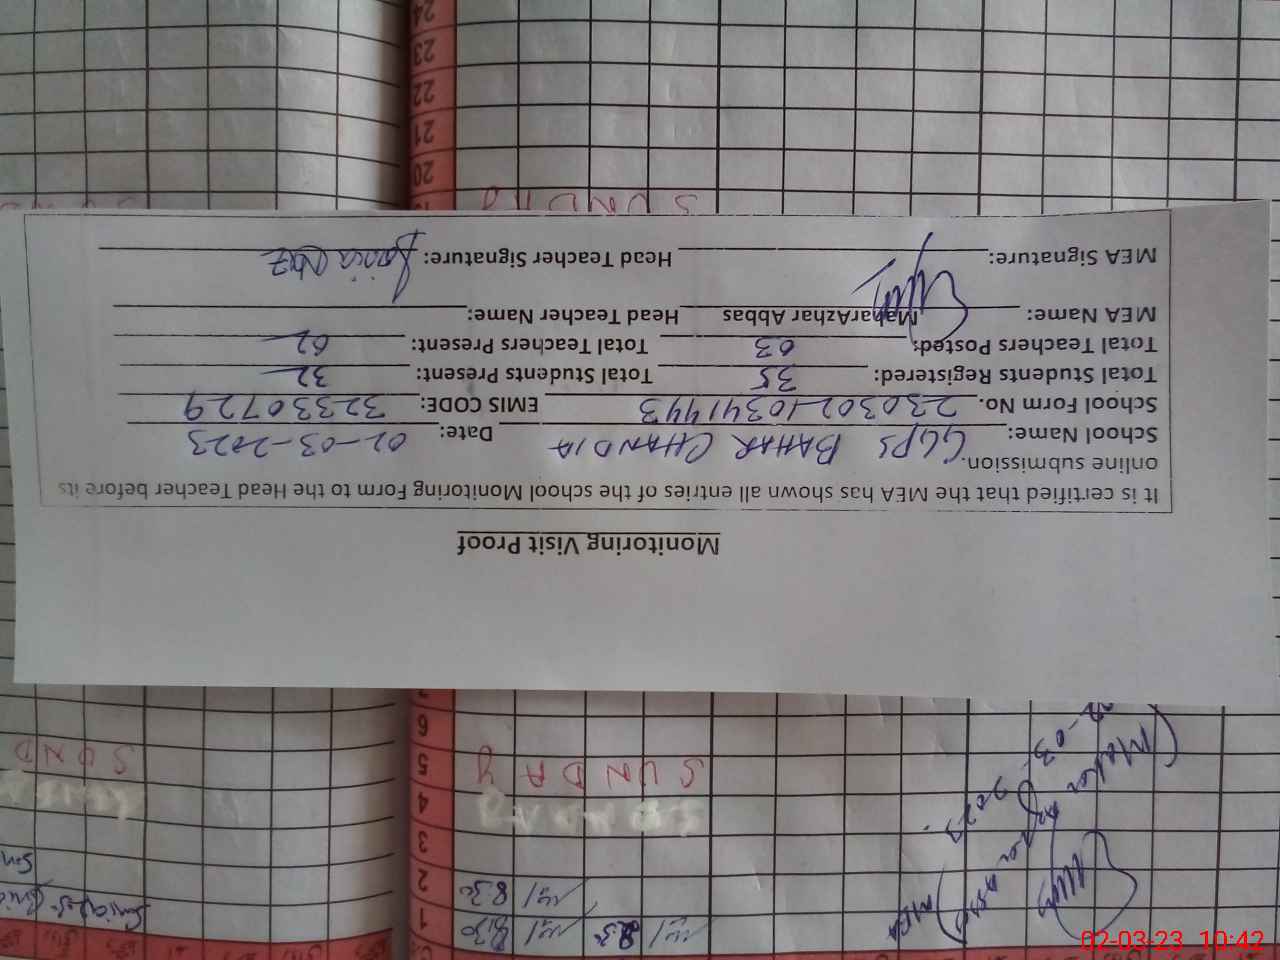 Monitoring Visit Proof
It is certified that the MEA has shown all entries of the school Monitoring Form to the Head Teacher before its
online submission.
School Name: GGPS BAHAR CHANDIA Date: 02-03-2023
School Form No. 230302-1034141443 EMIS CODE: 32330729
Total Students Registered: 35 Total Students Present: 32
Total Teachers Posted: 03 Total Teachers Present: 02
MEA Name: MaharAzhar Abbas Head Teacher Name:
MEA Signature: Head Teacher Signature:
24
23
22
21
20
SUNDA
6
5 SUNDAY
SUND
4
3
2 8.30
1 8.30
MEA
02-03
2023
02-03-23 10:42